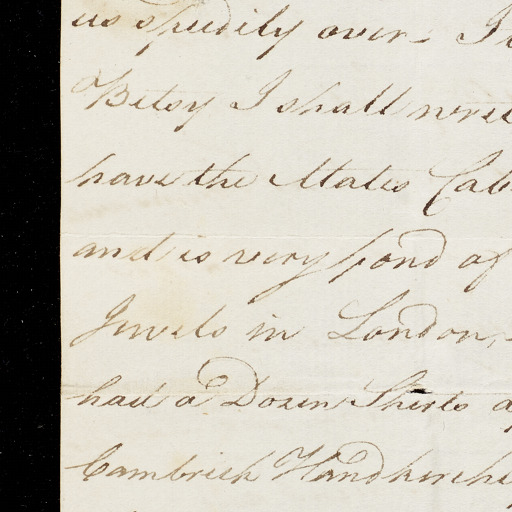 us speedily over - I
Betsy I shall write
have the Mates Cab
and is very fond of
Jewels in London,
had a Dozen Shirts
Cambrick Handkerchi